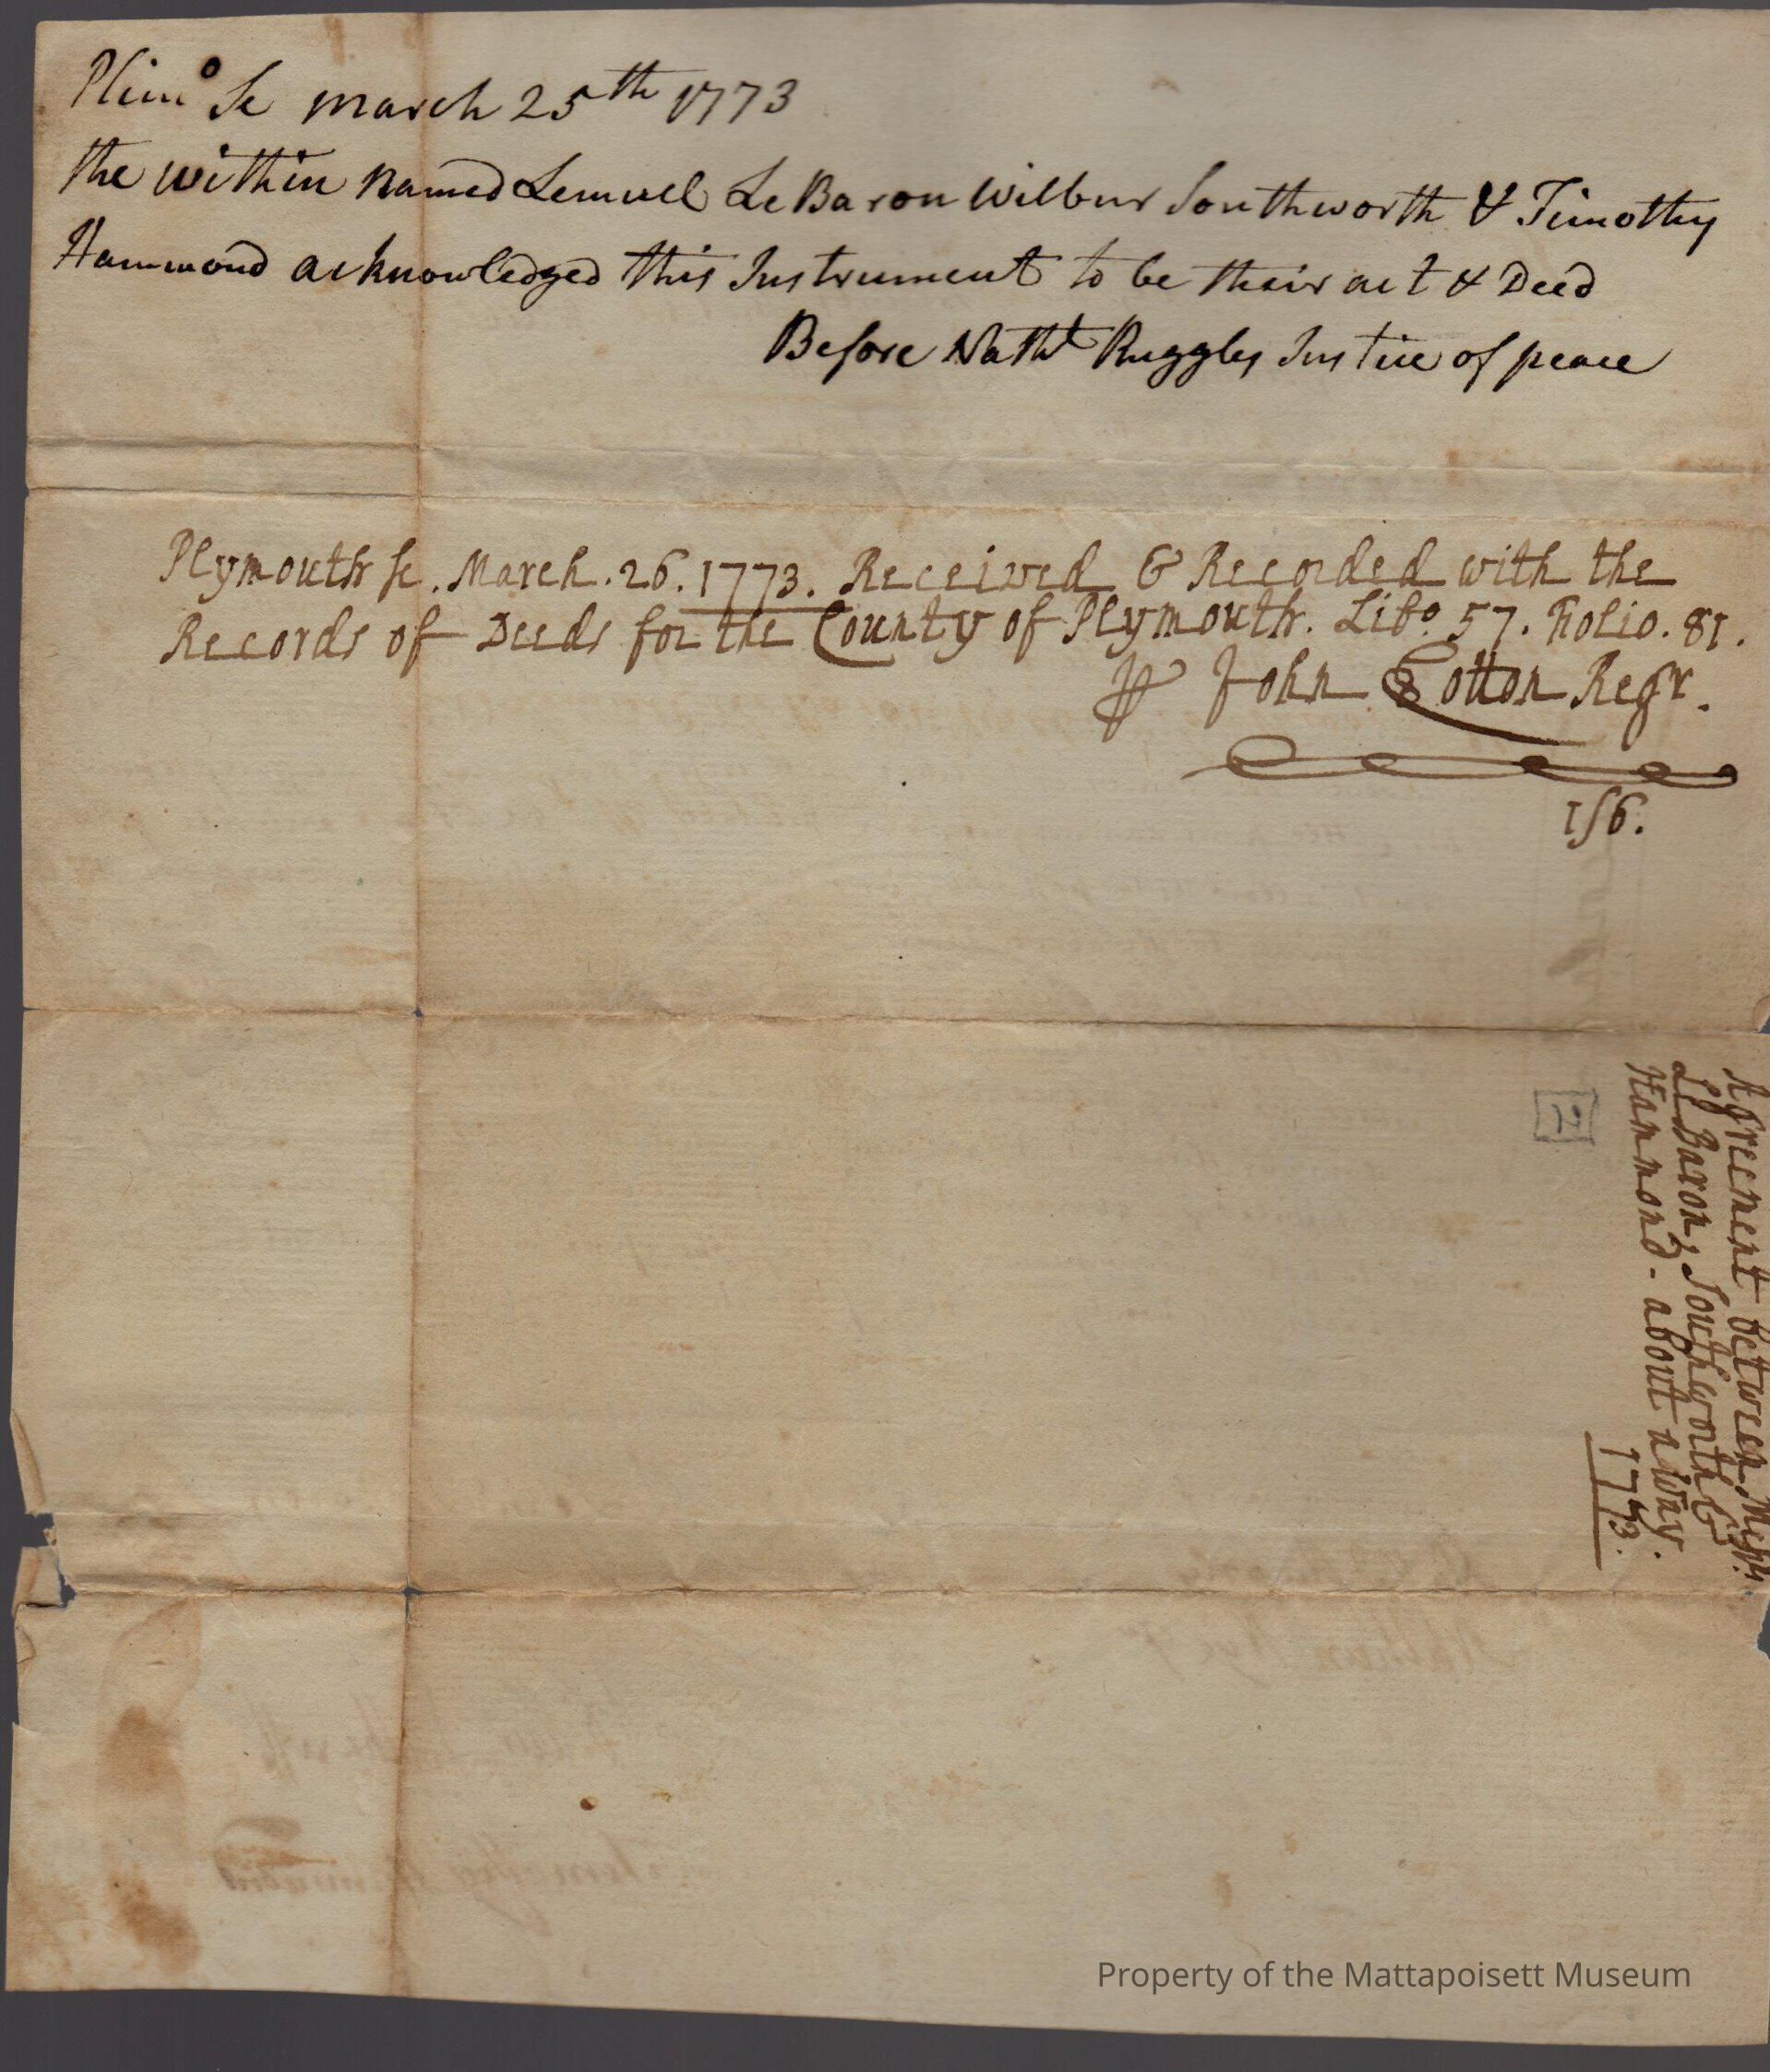 Plimo Sc March 25th 1773
the within named Lemuel LeBaron Wilbur Southworth & Timothy
Hammond acknowledged this Instrument to be their act & Deed
Before Nathl Ruggles Justice of peace
Plymouth sc. March. 26. 1773. Received & Recorded with the
Records of Deeds for the County of Plymouth. Libo. 57. Folio. 81.
John Cotton Regr.
1/6.
Agreement between Messrs.
LeBaron, Southworth &
Hammond - about a Way.
1773.
Property of the Mattapoisett Museum